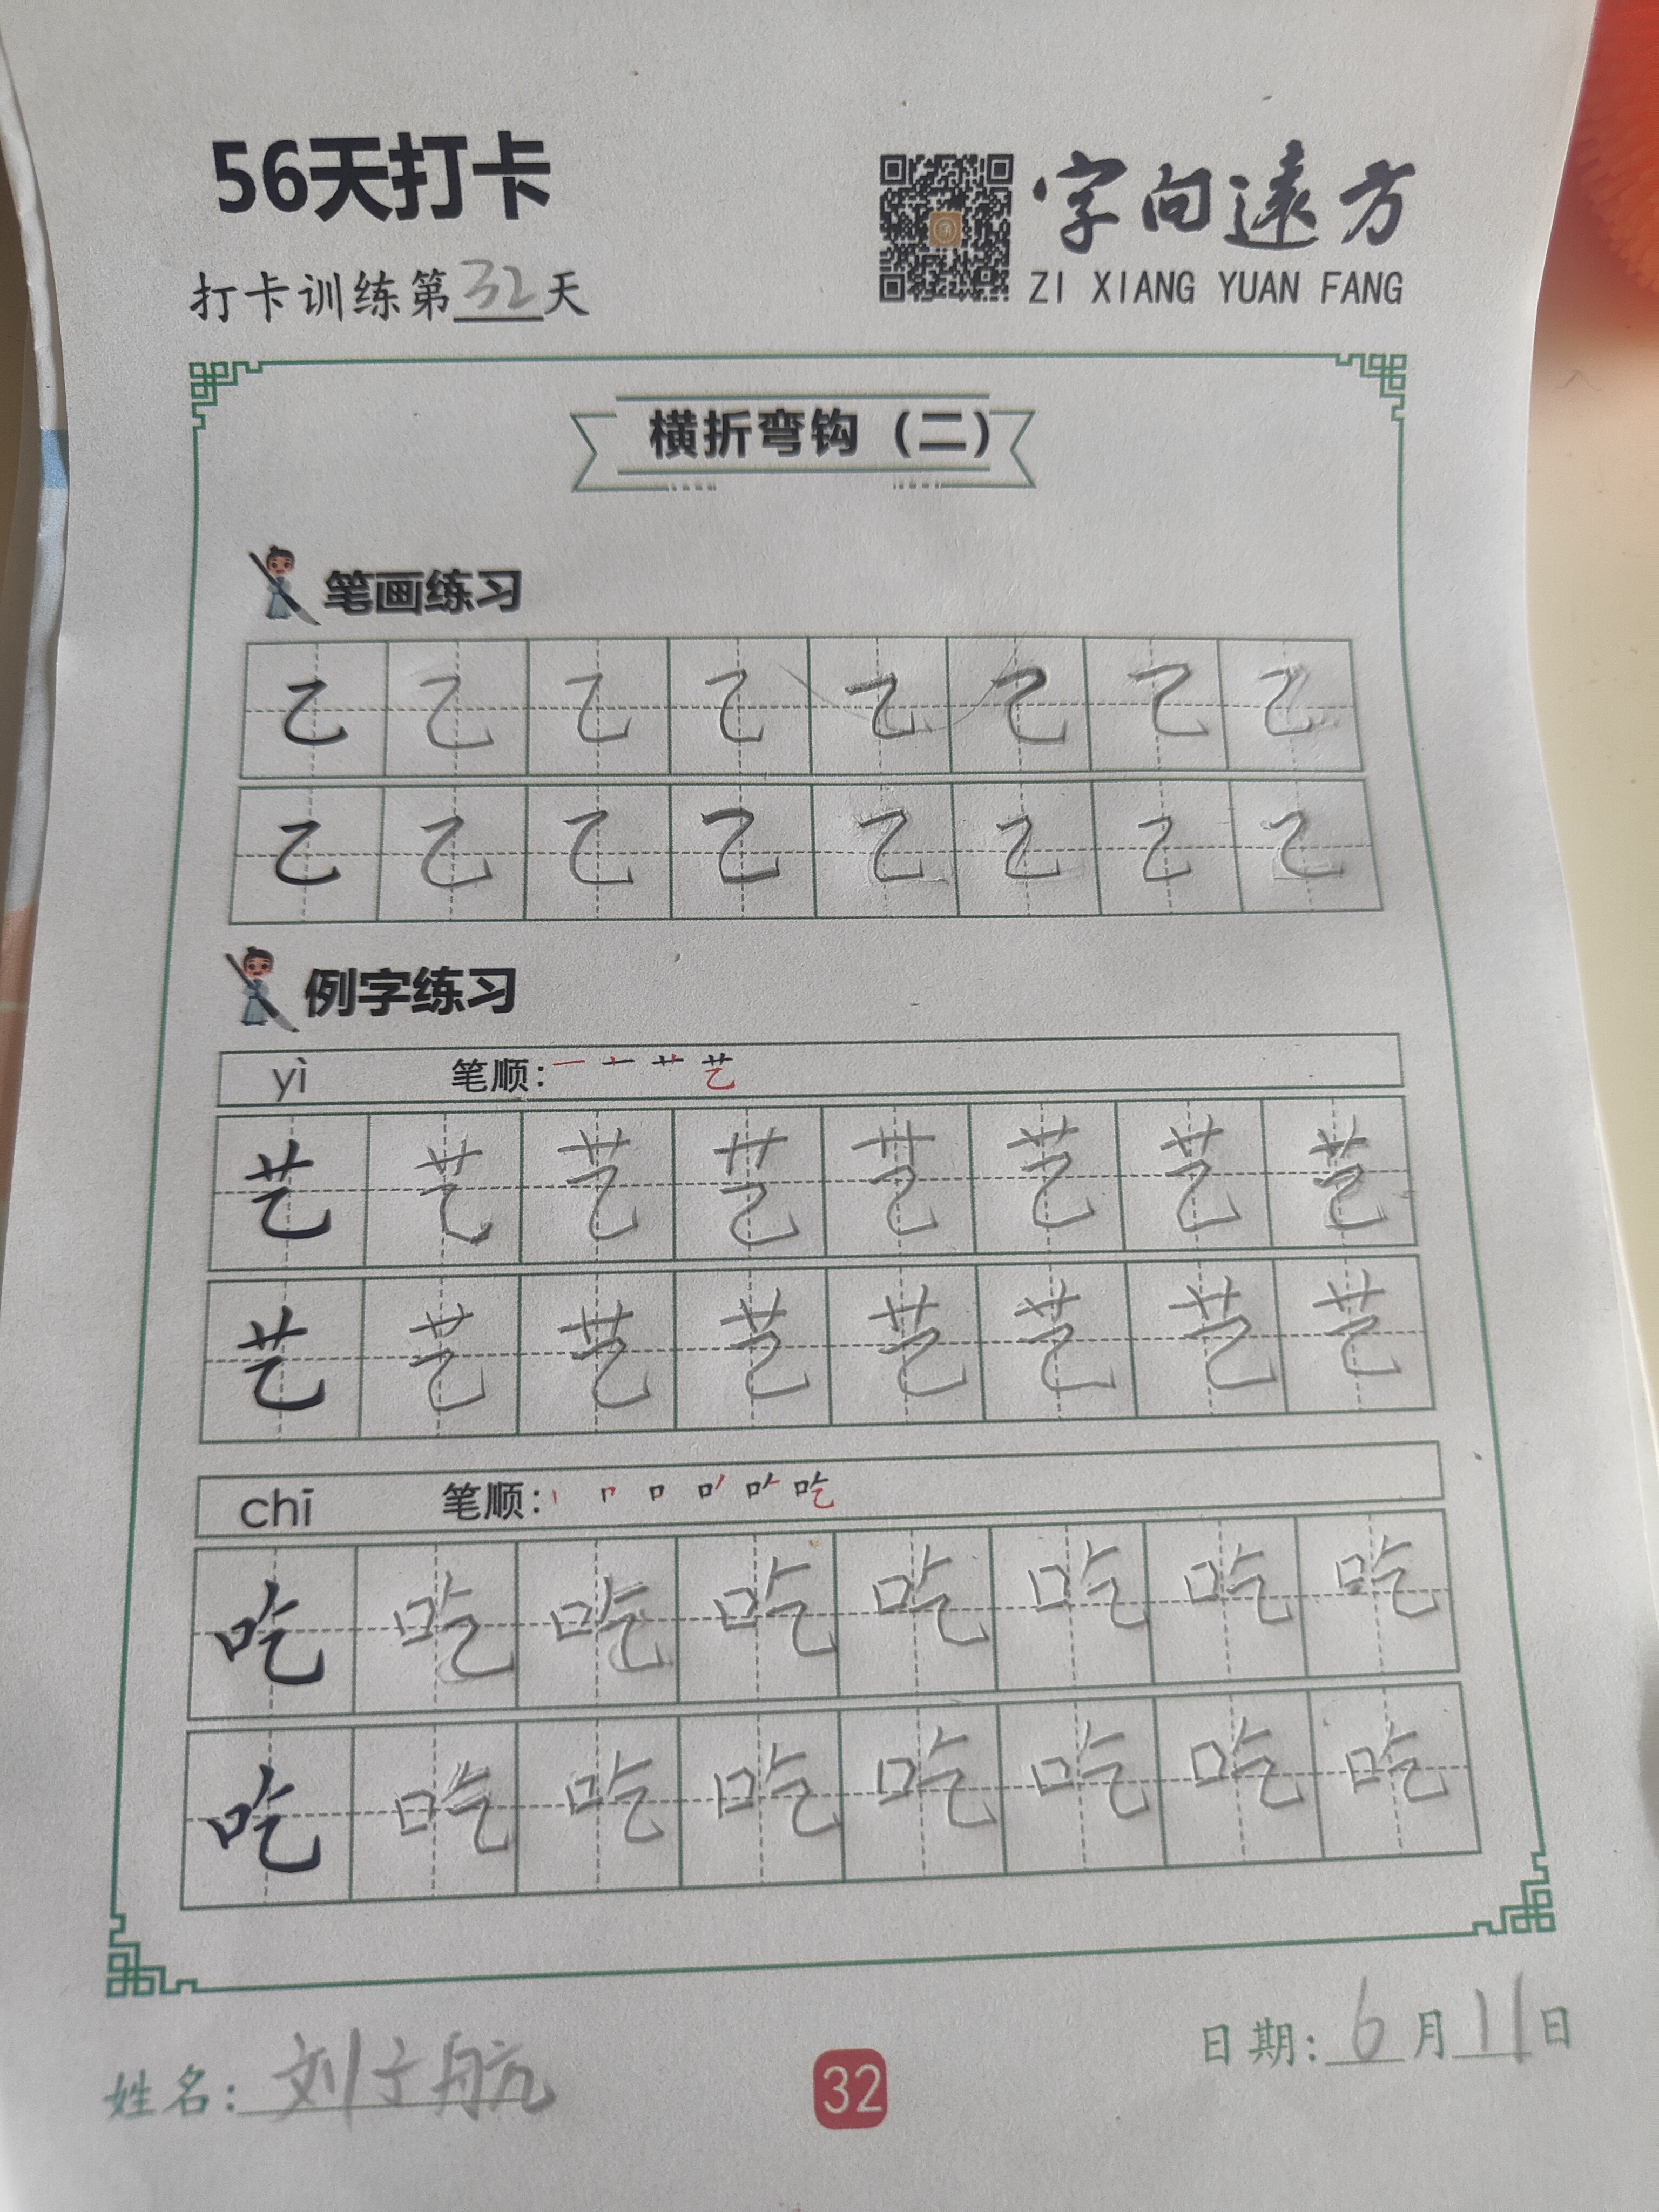 56天打卡
字向遠方
打卡训练第32天
ZI XIANG YUAN FANG
横折弯钩（二）
笔画练习
乙 乙 乙 乙 乙 乙 乙 乙
乙 乙 乙 乙 乙 乙 乙 乙
例字练习
yì 笔顺：一 十 艹 艺
艺 艺 艺 艺 艺 艺 艺 艺
艺 艺 艺 艺 艺 艺 艺 艺
chī 笔顺：丨 冂 口 吃
吃 吃 吃 吃 吃 吃 吃 吃
吃 吃 吃 吃 吃 吃 吃 吃
日期：6月11日
姓名：刘子航
32